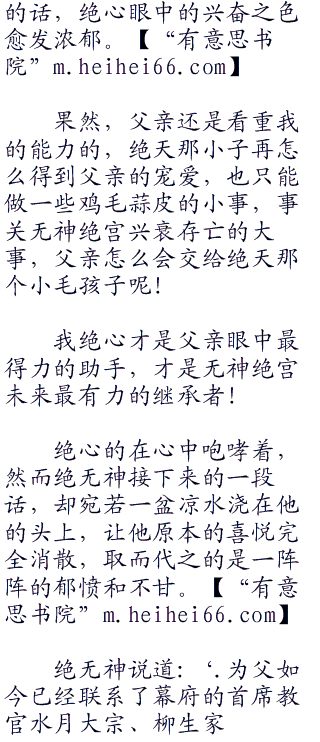 的话，绝心眼中的兴奋之色
愈发浓郁。【“有意思书
院”m.heihei66.com】
果然，父亲还是看重我
的能力的，绝天那小子再怎
么得到父亲的宠爱，也只能
做一些鸡毛蒜皮的小事，事
关无神绝宫兴衰存亡的大
事，父亲怎么会交给绝天那
个小毛孩子呢！
我绝心才是父亲眼中最
得力的助手，才是无神绝宫
未来最有力的继承者！
绝心的在心中咆哮着，
然而绝无神接下来的一段
话，却宛若一盆凉水浇在他
的头上，让他原本的喜悦完
全消散，取而代之的是一阵
阵的郁愤和不甘。【“有意
思书院”m.heihei66.com】
绝无神说道：‘.为父如
今已经联系了幕府的首席教
官水月大宗、柳生家